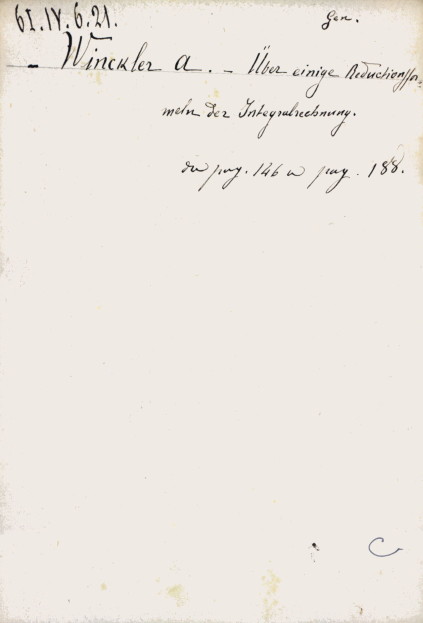 61.IV.6.21.
Gen.
- Winckler A. - Über einige Reductionsfor-
meln der Integralrechnung.
da pag. 146 a pag. 188.
C